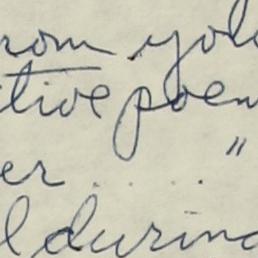 rom you
tive poem
er . . . . "
l during